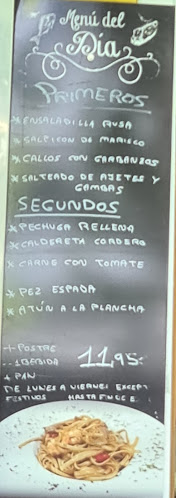 Menú del
Día
PRIMEROS
* ENSALADILLA RUSA
* SALPICON DE MARISCO
* CALLOS CON GARBANZOS
* SALTEADO DE AJETES Y
GAMBAS
SEGUNDOS
* PECHUGA RELLENA
* CALDERETA CORDERO
* CARNE CON TOMATE
* PEZ ESPADA
* ATÚN A LA PLANCHA
+ POSTRE
1 BEBIDA 11,95
+ PAN
DE LUNES A VIERNES EXCEPT
FESTIVOS HASTA